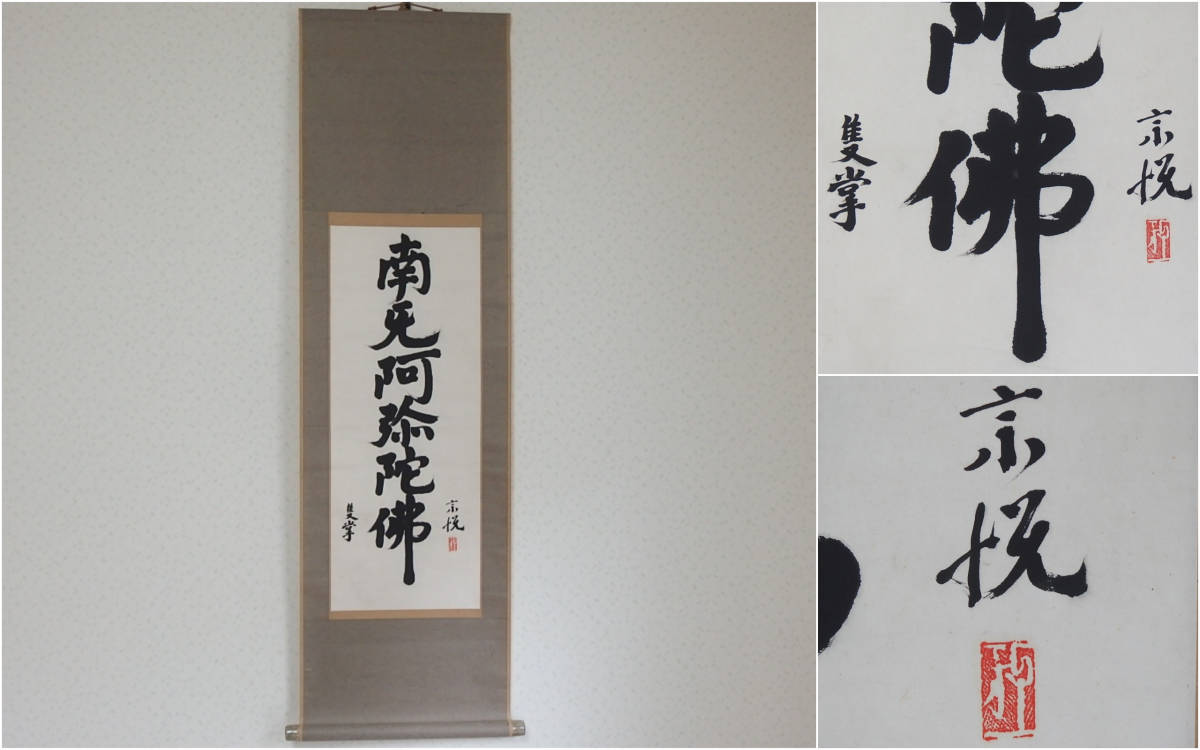 宗悦
南无阿弥陀佛
隻掌
宗悦
陀佛
隻掌
宗悦